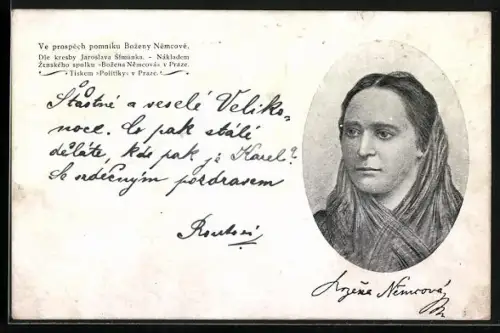 Ve prospěch pomníku Boženy Němcové.
Dle kresby Jaroslava Šimůnka. - Nákladem
Ženského spolku »Božena Němcová« v Praze.
Tiskem »Politiky« v Praze.
Šťastné a veselé Veliko-
noce. Co pak stále
děláte, kde pak je Karel?
Se srdečným pozdravem
Božena Němcová